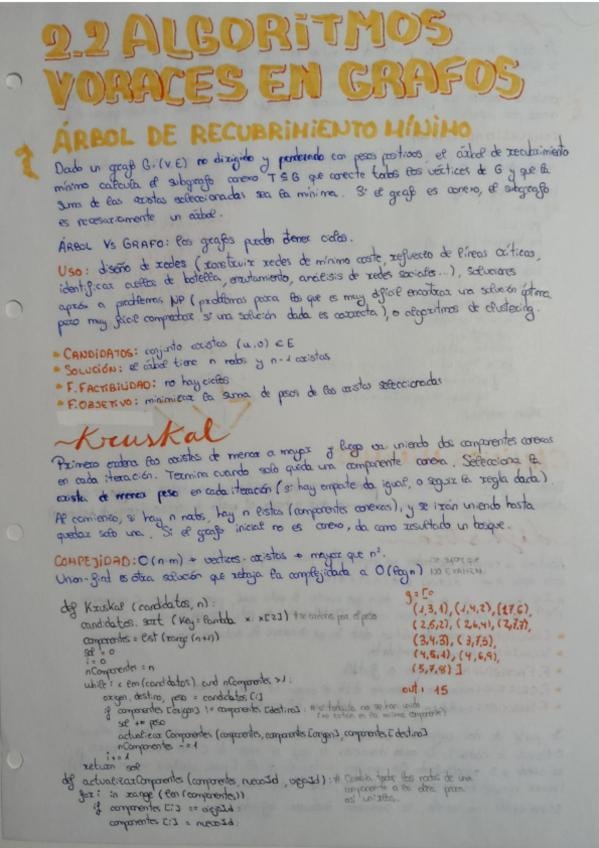 2.2 ALGORITMOS
VORACES EN GRAFOS
ÁRBOL DE RECUBRIMIENTO MÍNIMO
Dado un grafo G=(V,E) no dirigido y ponderado con pesos positivos, el árbol de recubrimiento
mínimo calcula el subgrafo conexo T⊆G que conecte todos los vértices de G y que la
suma de las aristas seleccionadas sea la mínima. Si el grafo es conexo, el subgrafo
es necesariamente un árbol.
ÁRBOL VS GRAFO: los grafos pueden tener ciclos.
USO: diseño de redes (construir redes de mínimo coste, refuerzo de líneas críticas,
identificar cuellos de botella, enrutamiento, análisis de redes sociales...), soluciones
aprox a problemas NP (problemas para los que es muy difícil encontrar una solución óptima
pero muy fácil comprobar si una solución dada es correcta), o algoritmos de clustering.
• CANDIDATOS: conjunto aristas (u,v) ∈ E
• SOLUCIÓN: el árbol tiene n nodos y n-1 aristas
• F. FACTIBILIDAD: no hay ciclos
• F. OBJETIVO: minimizar la suma de pesos de las aristas seleccionadas
~Kruskal
Primero ordena las aristas de menor a mayor y luego va uniendo dos componentes conexas
en cada iteración. Termina cuando solo queda una componente conexa. Selecciona la
arista de menor peso en cada iteración (si hay empate da igual, o seguir la regla dada).
Al comienzo, si hay n nodos, hay n listas (componentes conexas), y se irán uniendo hasta
quedar solo una. Si el grafo inicial no es conexo, da como resultado un bosque.
COMPEJIDAD: O(n·m) → vertices·aristas → mayor que n².
Union-find es otra solución que rebaja la complejidad a O(log n)
NO EXAMEN.
def Kruskal (candidatos, n):
candidatos.sort (key=lambda x: x[2]) # se ordena por el peso
componentes = list (range(n+1))
sol = 0
i = 0
nComponentes = n
while i < len(candidatos) and nComponentes > 1:
origen, destino, peso = candidatos[i]
if componentes [origen] != componentes [destino]: # si todavía no se han unido
(no están en la misma componente)
sol += peso
actualizarComponentes (componentes, componentes[origen], componentes[destino])
nComponentes -= 1
i += 1
return sol
g = [
(1,3,1), (1,4,2), (1,7,6),
(2,5,2), (2,6,4), (2,7,7),
(3,4,3), (3,7,5),
(4,5,1), (4,6,9),
(5,7,8) ]
out: 15
def actualizarComponentes (componentes, nuevoId, viejoId): # Cambia todos los nodos de una
componente a la otra, para
así unirlas.
for i in range (len (componentes)):
if componentes [i] == viejoId:
componentes [i] = nuevoId